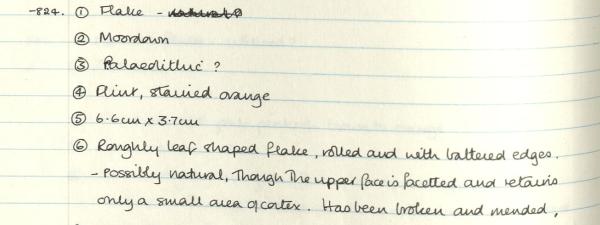 -824. ① Flake - natural?
② Moordown
③ Palaeolithic ?
④ Flint, stained orange
⑤ 6.6cm x 3.7cm
⑥ Roughly leaf shaped flake, rolled and with battered edges.
- Possibly natural, Though The upper face is facetted and retains
only a small area of cortex. Has been broken and mended,